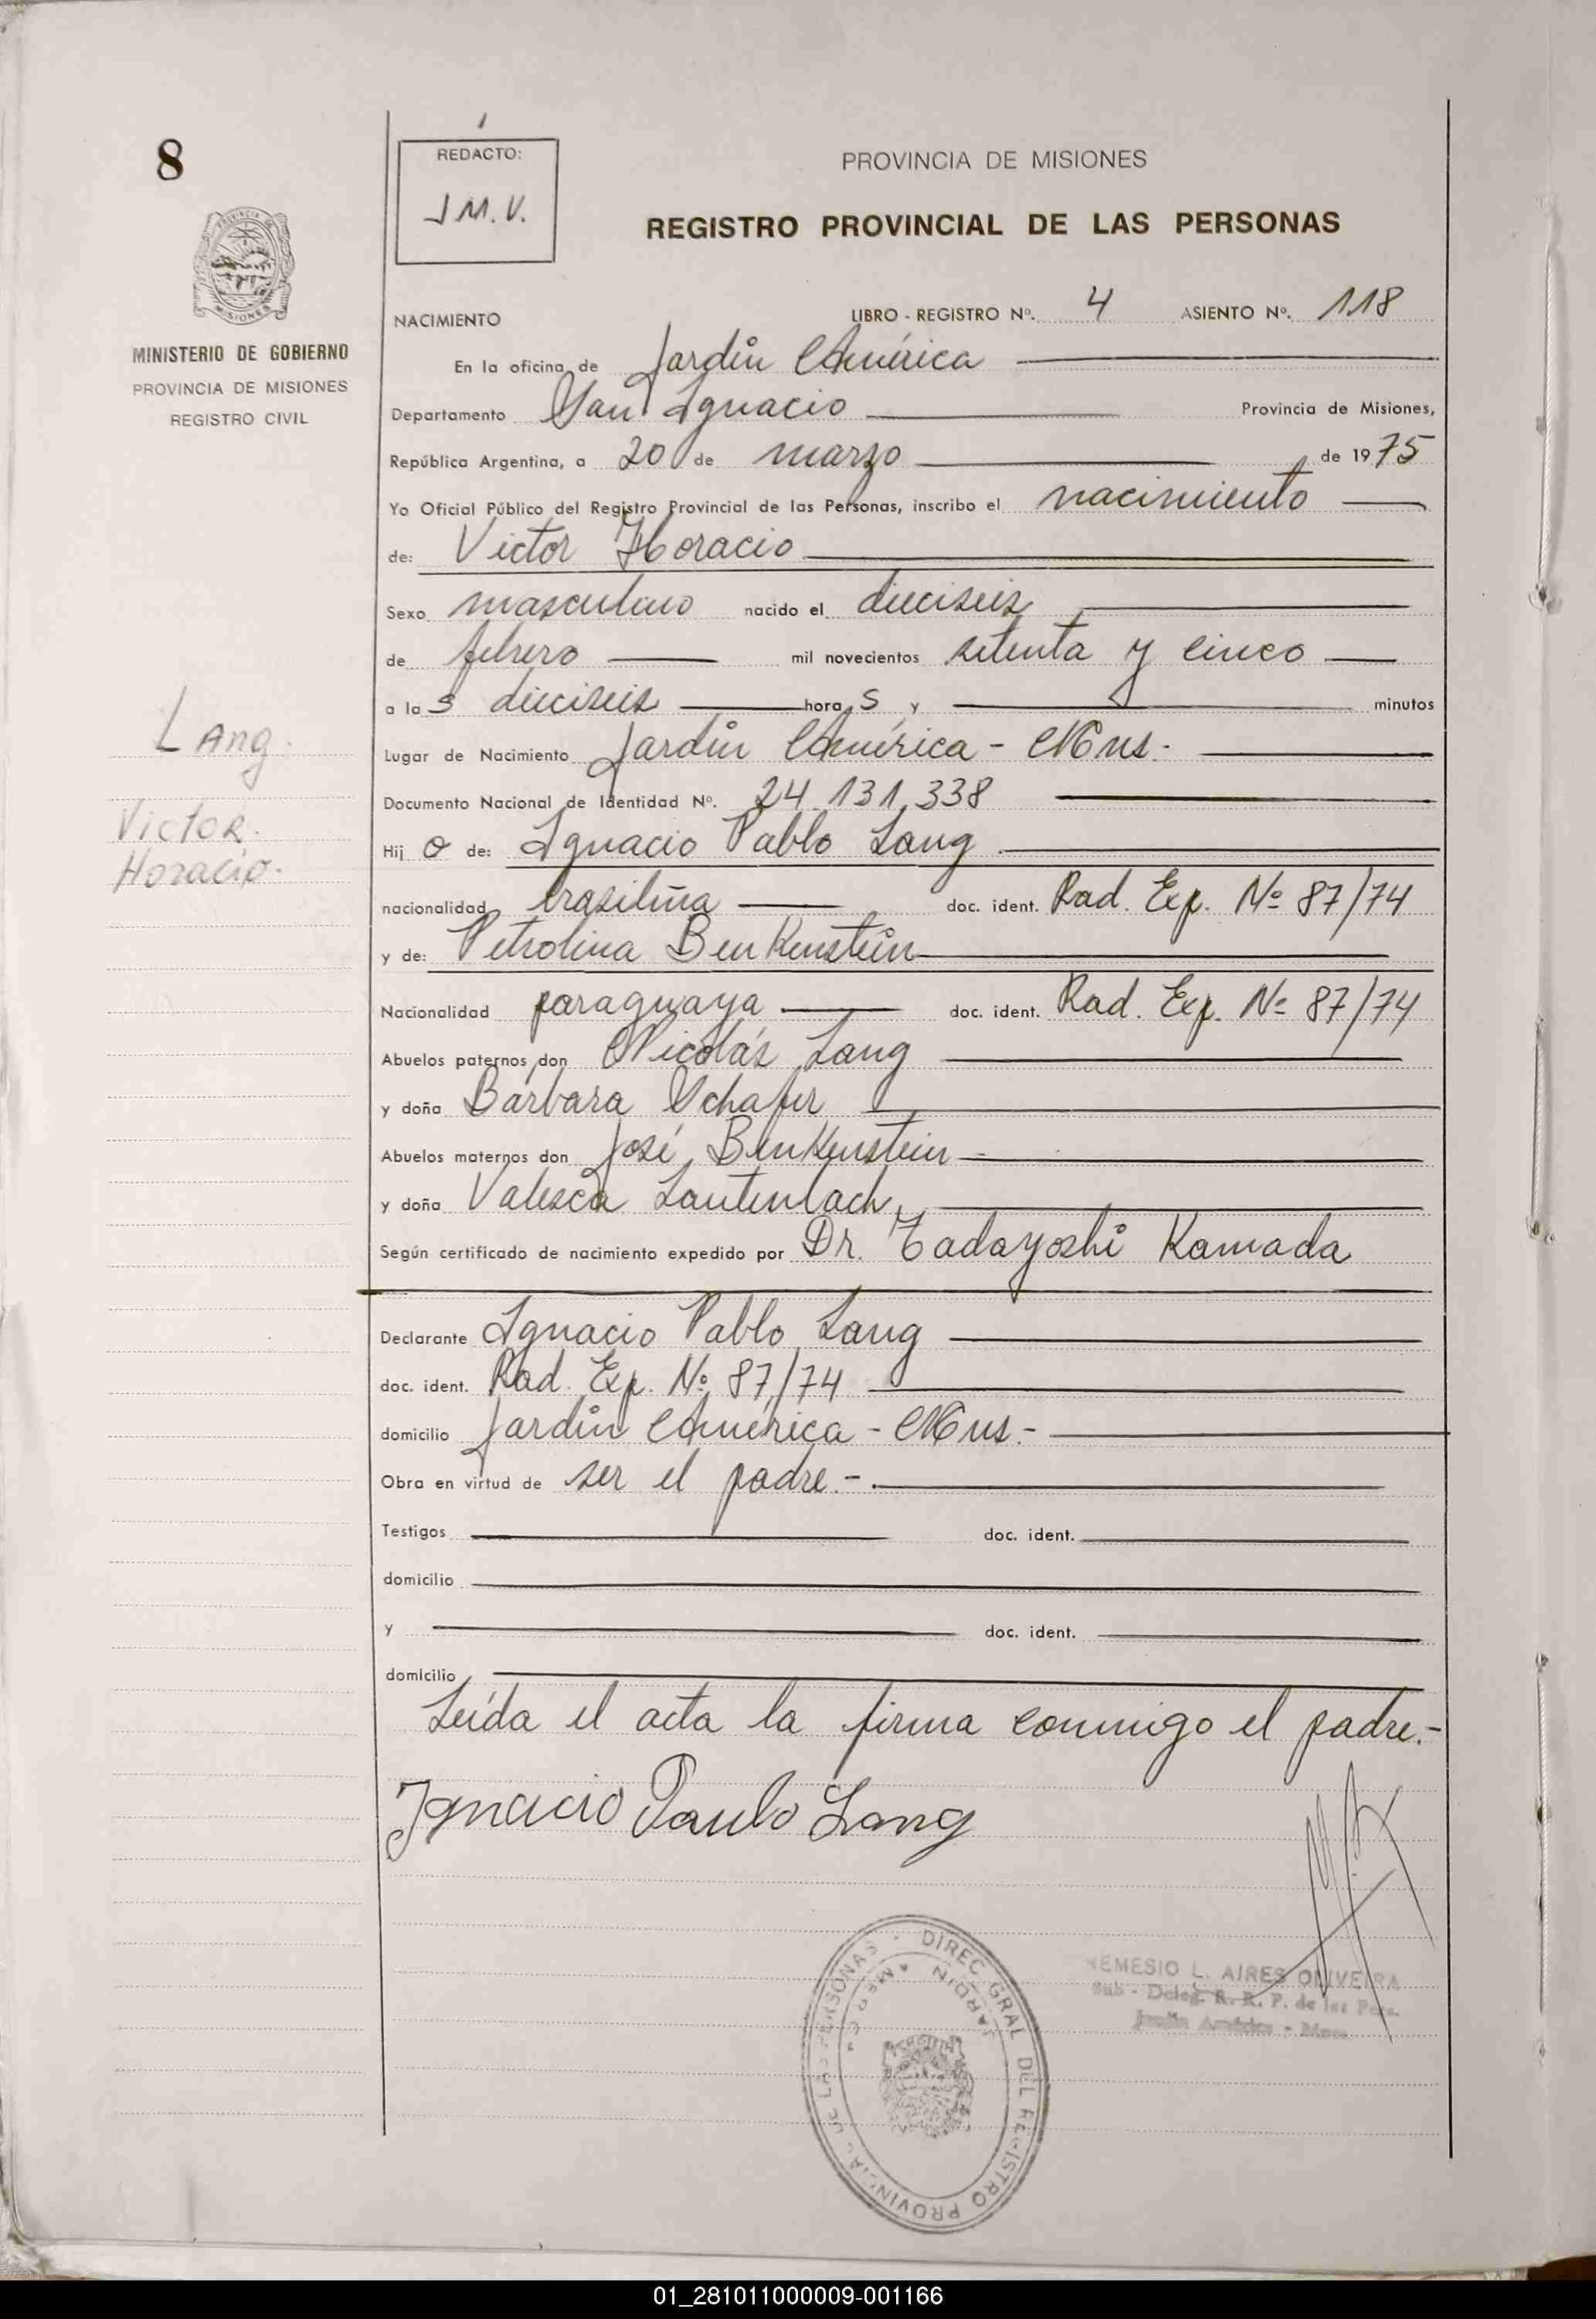 8
REDACTO:
J M. V.
PROVINCIA DE MISIONES
REGISTRO PROVINCIAL DE LAS PERSONAS
MISIONES
MINISTERIO DE GOBIERNO
PROVINCIA DE MISIONES
REGISTRO CIVIL
NACIMIENTO LIBRO - REGISTRO Nº. 4 ASIENTO Nº. 118
En la oficina de Jardín América
Departamento San Ignacio Provincia de Misiones,
República Argentina, a 20 de marzo de 1975
Yo Oficial Público del Registro Provincial de las Personas, inscribo el nacimiento
de: Victor Horacio
Sexo masculino nacido el dieciseis
de febrero mil novecientos setenta y cinco
a las dieciseis horas y minutos
Lugar de Nacimiento Jardín América - Mns.-
Documento Nacional de Identidad Nº. 24.131.338
Hijo de: Ignacio Pablo Lang
nacionalidad brasileña doc. ident. Rad. Exp. Nº 87/74
y de: Petrolina Benkenstein
Nacionalidad paraguaya doc. ident. Rad. Exp. Nº 87/74
Abuelos paternos don Nicolás Lang
y doña Bárbara Schafer
Abuelos maternos don José Benkenstein
y doña Valesca Lautenbach
Según certificado de nacimiento expedido por Dr. Tadayoshi Kamada
Declarante Ignacio Pablo Lang
doc. ident. Rad. Exp. Nº 87/74
domicilio Jardín América - Mns.-
Obra en virtud de ser el padre.-
Testigos doc. ident.
domicilio
y doc. ident.
domicilio
Leída el acta la firma conmigo el padre.-
Ignacio Paulo Lang
Lang.
Victor.
Horacio.
DIREC. GRAL DEL REGISTRO PROVINCIAL DE LAS PERSONAS
NEMESIO L. AIRES OLIVEIRA
Sub - Deleg. R. R. P. de las Pers.
Jardín América - Mnes.
01_281011000009-001166